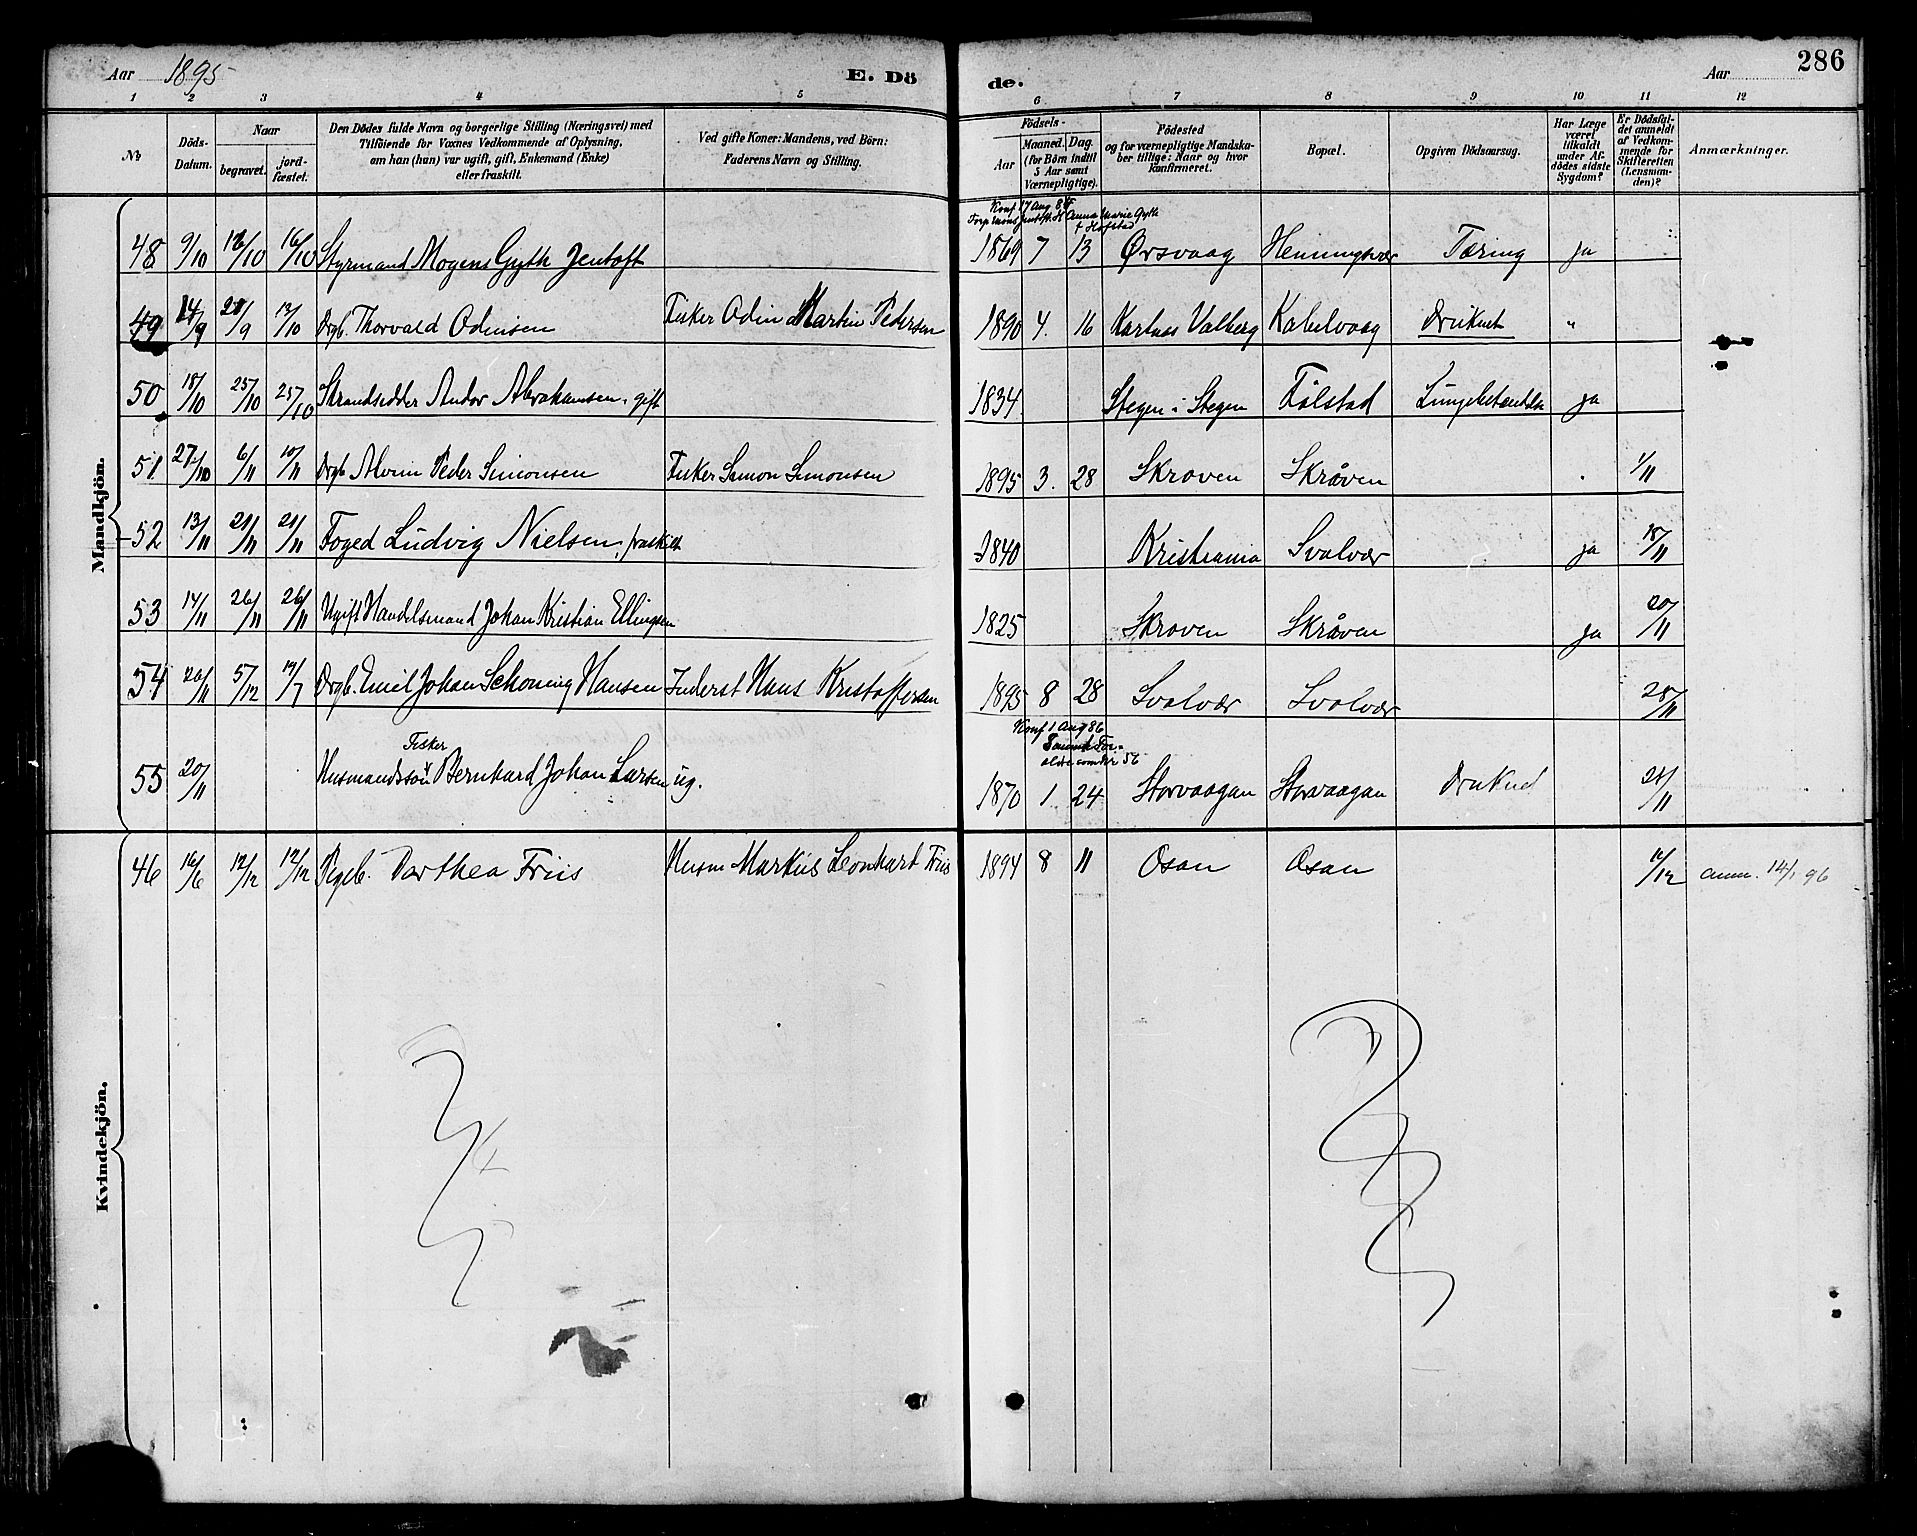 Aar 1895 E. Dö de. Aar 286
1 2 3 4 5 6 7 8 9 10 11 12
№ Döds-Datum. Naar begravet. jordfæstet. Den Dödes fulde Navn og borgerlige Stilling (Næringsvei) med Tilföiende for Voxnes Vedkommende af Oplysning, om han (hun) var ugift, gift, Enkemand (Enke) eller fraskilt. Ved gifte Koner: Mandens, ved Börn: Faderens Navn og Stilling. Födsels- Aar Maaned. Dag. (for Börn indtil 5 Aar samt Værnepligtige). Födested og for værnepligtige Mandskaber tillige: Naar og hvor konfirmeret. Bopæl. Opgiven Dödsaarsag. Har Læge været tilkaldt under Afdödes sidste Sygdom? Er Dödsfaldet anmeldt af Vedkommende for Skifteretten (Lensmanden)? Anmærkninger.
Mandkjön.
Konf 17 Aug 84
Anna Marie Gyth
f Hofstad
48 9/10 16/10 16/10 Styrmand Mogens Gyth Jentoft 1869 7 13 Ørsvaag Henningsvær Tæring ja
49 14/9 21/9 12/10 Drgb. Thorvald Odinsen Fisker Odin Martin Pedersen 1890 4. 16 Valberg Kabelvaag Druknet "
50 18/10 25/10 25/10 Strandsidder Andor Abrahamsen, gift 1834 Stegen i Stegen Følstad Lungebetændelse ja
51 27/10 6/11 10/11 Drgb Alvin Peder Simonsen Fisker Simon Simonsen 1895 3. 28 Skroven Skråven 1/11
52 13/11 21/11 21/11 Foged Ludvig Nielsen, fraskilt 1840 Kristiania Svolvær ja 18/11
53 14/11 26/11 26/11 Ugift Handelsmand Johan Kristian Ellingsen 1825 Skroven Skråven ja 20/11
54 20/11 5/12 19/7 Drgb. Emil Johan Schøning Hansen Inderst Hans Kristoffersen 1895 8 28 Svolvær Svolvær 28/11
Konf 1 Aug 86
55 20/11 Husmandssøn Fisker Bernhard Johan Larsen ug. 1870 1 24 Storvaagan Storvaagan Druknet 21/11
Kvindekjön.
46 16/6 12/12 12/12 Pigeb. Dorthea Friis Husm Markus Leonhart Friis 1894 8 11 Osan Osan 12/12 anm. 14/1 96